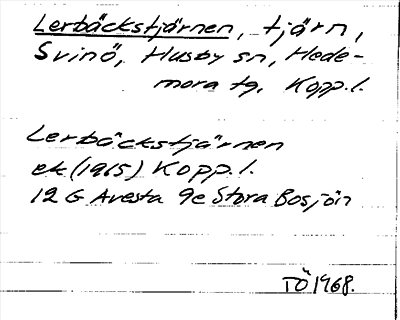 Lerbäckstjärnen, tjärn,
Svinö, Husby sn, Hede-
mora tg. Kopp.l.
Lerbäckstjärnen
ek (1965) Kopp.l.
12 G Avesta 9e Stora Bosjön
TÖ 1968.